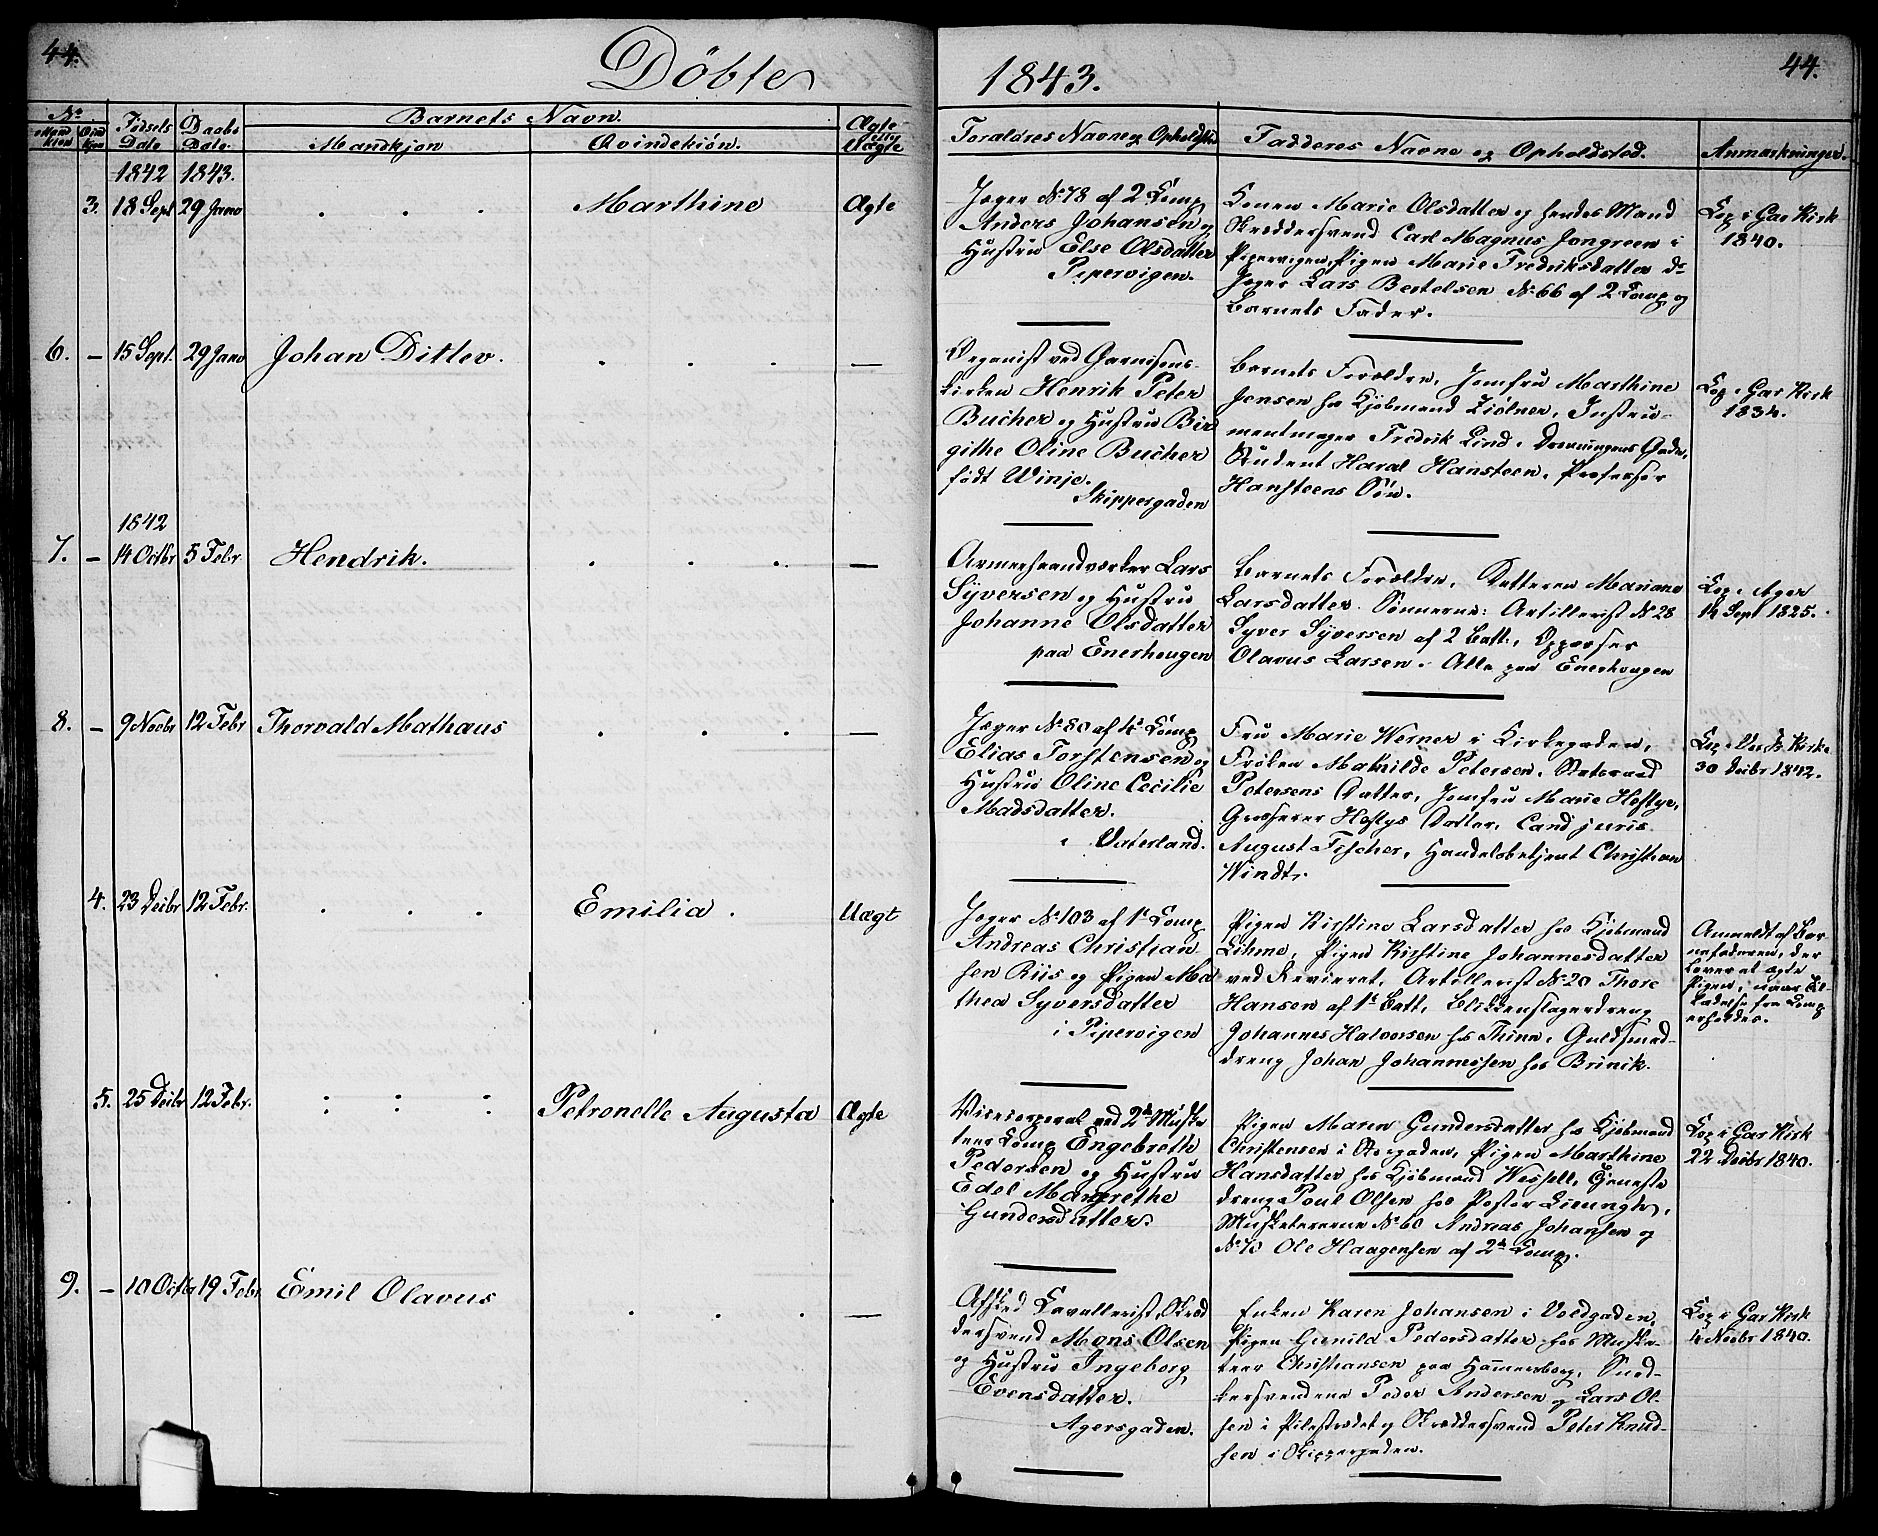 44.
Döbte
1843.
44.
No
Mand kiön
Qvind kjön
Fødsels Date
Daabs Date.
Barnets Navn.
Mandkjøn
Qvindekiön.
Ægte eller Uægte
Foraldres Navne og Opholdsted
Fadderes Navne og Opholdsted.
Anmærkninger.
1842 1843.
3. 18 Sept 29 Janu . . . Marthine Ægte
Jæger No 78 af 2 Comp
Anders Johansen og
Hustru Else Olsdatter
Pipervigen.
Konen Marie Olsdatter og hendes Mand
Skræddersvend Carl Magnus Jongreen i
Pipervigen, Pigen Marie Fredriksdatter do
Jæger Lars Bertelsen No 66 af 2 Comp og
Barnets Fader.
Cop i Gar Kirk
1840.
6. – 15 Sept. 29 Janu Johan Ditlev. . . . –
Organist ved Garnisons-
kirken Henrik Peter
Bucher og Hustru Bir
githe Oline Bucher
födt Winje.
Skippergaden
Barnets Forældre, Jomfru Marthine
Jensen hos Kjöbmand Ziölner, Instru-
mentmager Fredrik Lind i Dronningens Gade,
Student Haral Hansteen, Professor
Hansteens Sön.
Cop i Gar Kirk
1834.
1842
7. – 14 Octbr 5 Febr Hendrik. . . . –
Armerhaandværker Lars
Syversen og Hustru
Johanne Olsdatter
paa Enerhougen
Barnets Forældre, Datteren Mariane
Larsdatter. Sönnerne: Artillerist No 28
Syver Syversen af 2 Batt:, Oppasser
Olavus Larsen. Alle paa Enerhougen
Cop i Ager
14 Sept 1825.
8. – 9 Novbr 12 Febr Thorvald Mathæus . . . –
Jæger No 80 af 4 Comp
Elias Torstensen og
Hustru Oline Cecilie
Madsdatter.
i Vaterland.
Fru Marie Werner i Kirkegaden,
Frøken Mathilde Petersen, Statsraad
Petersens Datter, Jomfru Marie Heftye,
Grosserer Heftys Datter, Cand juris.
August Fischer, Handelsbetjent Christian
Windt.
Cop i Vor Fr. Kirke
30 Decbr 1842.
4. 23 Decbr 12 Febr. . . . Emilia . Uægt
Jæger No 103 af 1e Comp
Andreas Christian
sen Riis og Pigen Ma
thea Syversdatter
i Pipervigen
Pigen Kirstine Larsdatter hos Kjöbmand
Lihme, Pigen Kirstine Johannesdatter
ved Revieret, Artillerist No 20 Thore
Hansen af 1e Batt, Blikkenslagerdreng
Johannes Halvorsen hos Thinn, Guldsmed-
dreng Johan Johannesen hos Brinik.
Anmeldt af Bar
nefaderen, der
lover at ægte
Pigen, naar Til-
ladelse fra Comp
erholdes.
5. 25 Decbr 12 Febr. : : : Petronelle Augusta Ægte
Vicecorporal ved 2d Muske
teer Comp Engebreth
Pedersen og Hustru
Edel Margrethe
Gundersdatter.
Pigen Maren Gundersdatter hos Kjöbmand
Christensen i Storgaden, Pigen Marthine
Hansdatter hos Kjöbmand Wessell, Tjeneste
dreng Poul Olsen hos Pastor Liungh,
Musketererne No 60 Andreas Johansen og
No 70 Ole Haagensen af 2d Comp.
Cop i Gar Kirk
22 Decbr 1840.
9. – 10 Octbr 19 Febr Emil Olavus . . . –
Afsked Cavallerist, Skræd
dersvend Mons Olsen
og Hustru Ingeborg
Evensdatter.
Agersgaden.
Enken Karen Johansen i Voldgaden,
Pigen Gunild Pedersdatter hos Muske-
teer Christiansen paa Hammersborg, Sned-
kersvendene Peder Andersen og Lars Ol-
sen i Pilestrædet og Skræddersvend Peter Knud-
sen i Skippergaden.
Cop i Gar Kirk
4 Novbr 1840.